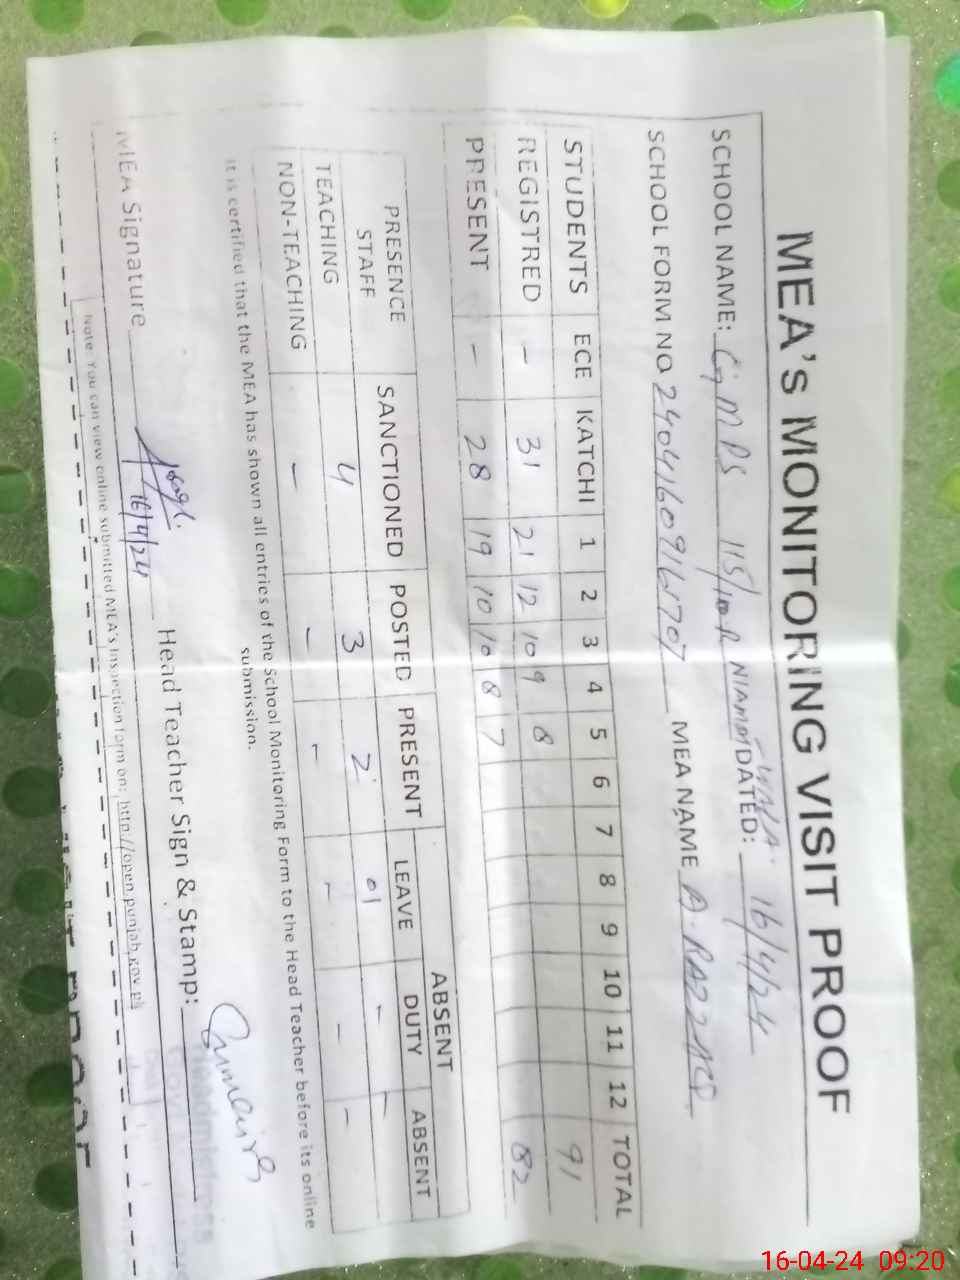 MEA's MONITORING VISIT PROOF
SCHOOL NAME: GGMPS 115/10R NIAMAT WALA. DATED: 16/4/24
SCHOOL FORM NO MEA NAME A. RAZZAQ
STUDENTS ECE KATCHI 1 2 3 4 5 6 7 8 9 10 11 12 TOTAL
REGISTRED - 31 21 12 10 9 8 91
PRESENT - 28 19 10 10 8 7 82
ABSENT
PRESENCE STAFF SANCTIONED POSTED PRESENT LEAVE DUTY ABSENT
TEACHING 4 3 2 01 - -
NON-TEACHING - - - - - -
It is certified that the MEA has shown all entries of the School Monitoring Form to the Head Teacher before its online
submission.
MEA Signature 16/4/24 Head Teacher Sign & Stamp:
Headmistress
Note: You can view online submitted MEA's Inspection form on: http://open.punjab.gov.pk
16-04-24 09:20